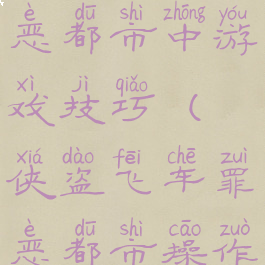 è dū shì zhōng yóu
恶都市中游
xì jì qiǎo
戏技巧(
xiá dào fēi chē zuì
侠盗飞车罪
è dū shì cāo zuò
恶都市操作